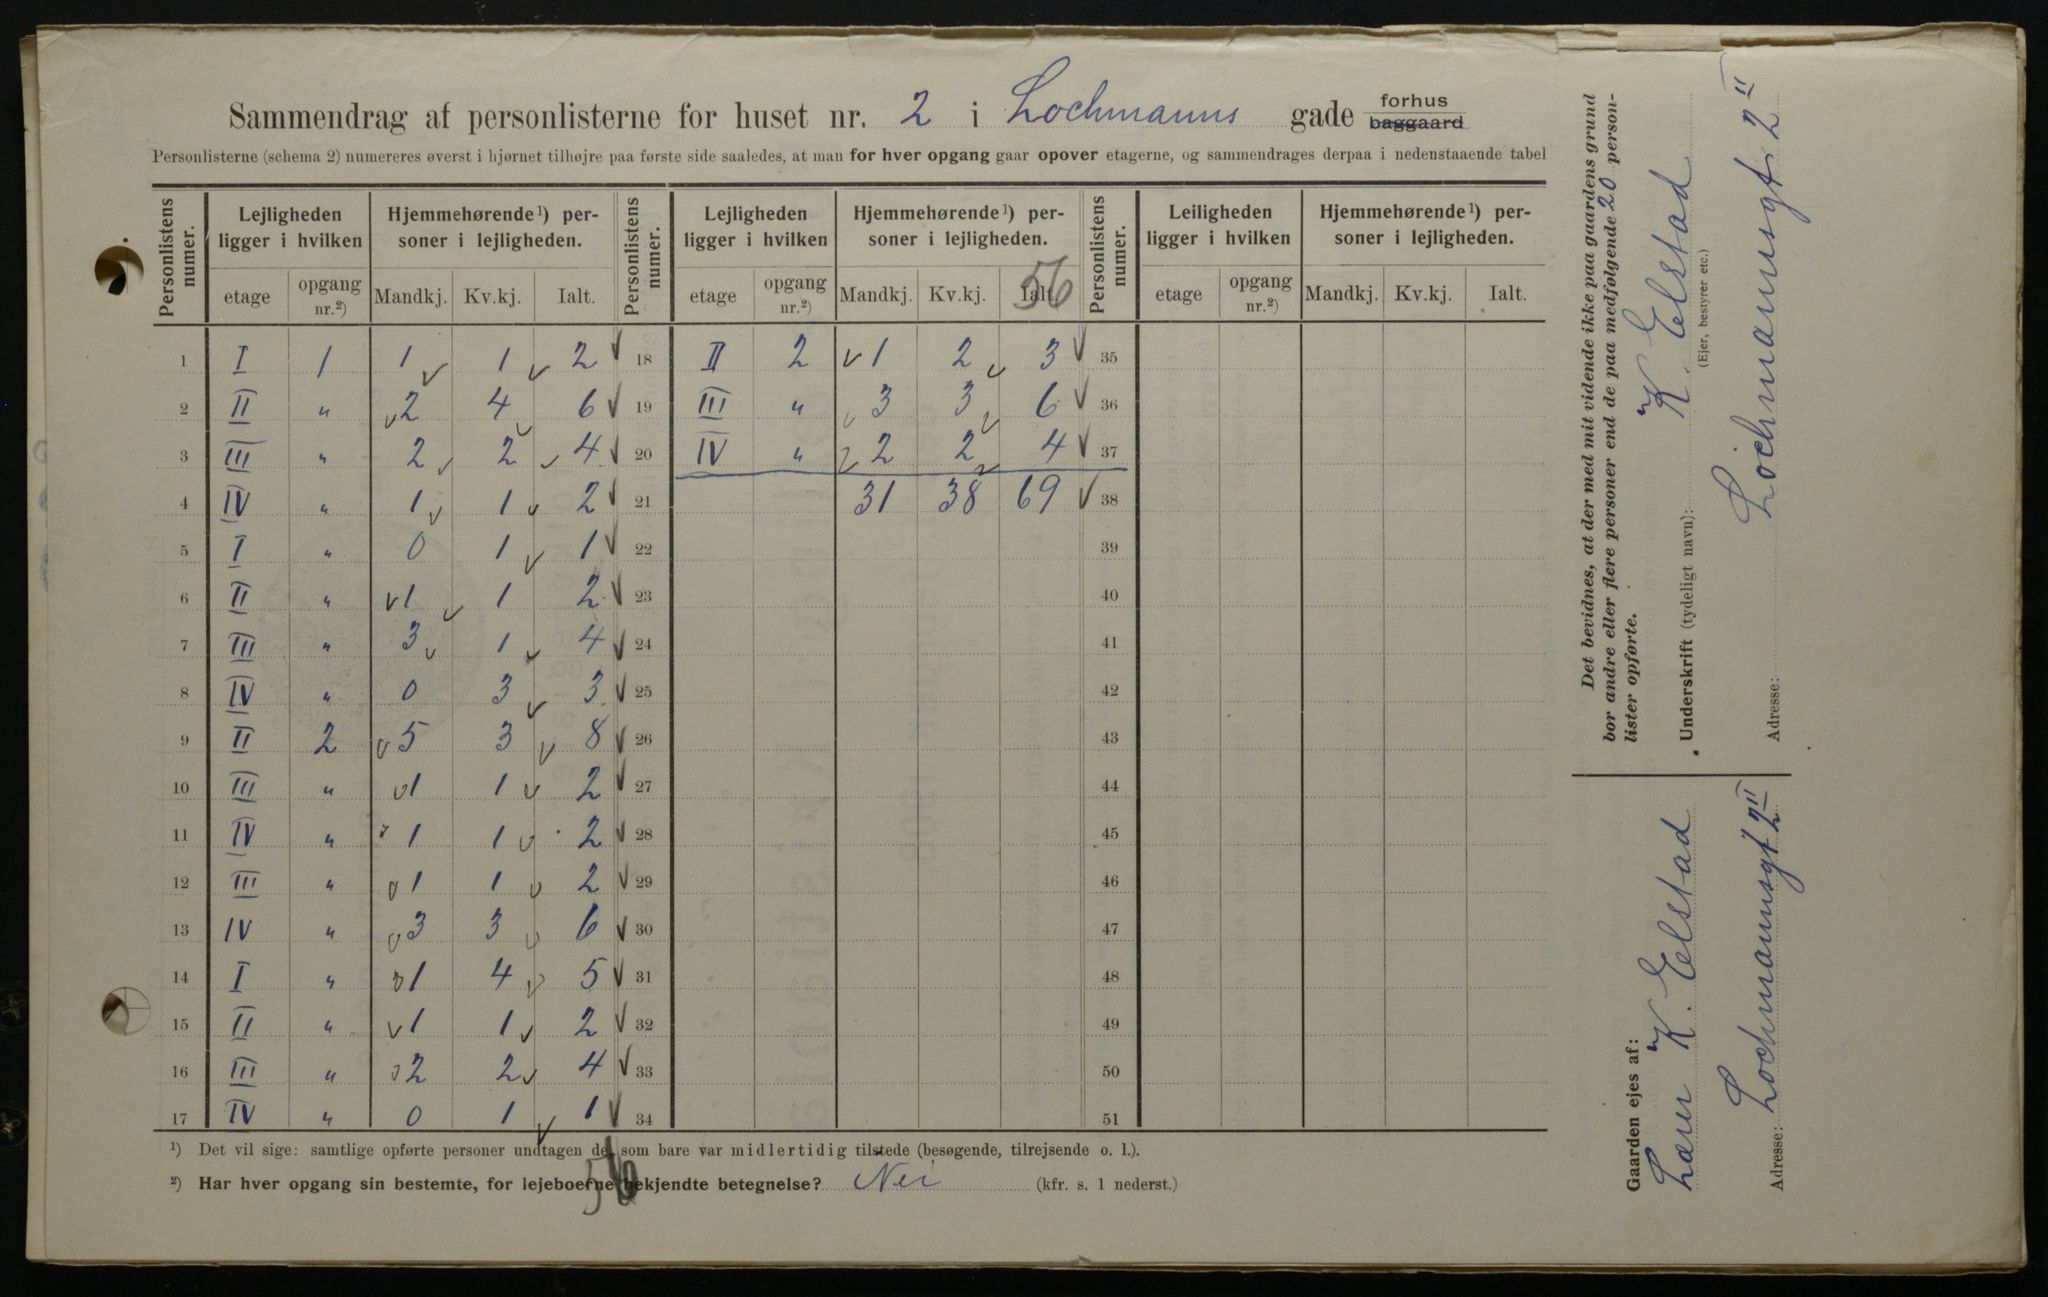 Sammendrag af personlisterne for huset nr. 2 i Lochmanns gade forhus baggaard
Personlisterne (schema 2) numereres øverst i hjørnet tilhøjre paa første side saaledes, at man for hver opgang gaar opover etagerne, og sammendrages derpaa i nedenstaaende tabel
Personlistens numer. Lejligheden ligger i hvilken Hjemmehørende¹) personer i lejligheden. Personlistens numer. Lejligheden ligger i hvilken Hjemmehørende¹) personer i lejligheden. Personlistens numer. Leiligheden ligger i hvilken Hjemmehørende¹) personer i lejligheden.
etage opgang nr.²) Mandkj. Kv.kj. Ialt. etage opgang nr.²) Mandkj. Kv.kj. Ialt. 56 etage opgang nr.²) Mandkj. Kv.kj. Ialt.
1 I 1 1 1 2 18 II 2 1 2 3 35
2 II " 2 4 6 19 III " 3 3 6 36
3 III " 2 2 4 20 IV " 2 2 4 37
4 IV " 1 1 2 21 31 38 69 38
5 I " 0 1 1 22 39
6 II " 1 1 2 23 40
7 III " 3 1 4 24 41
8 IV " 0 3 3 25 42
9 II 2 5 3 8 26 43
10 III " 1 1 2 27 44
11 IV " 1 1 2 28 45
12 III " 1 1 2 29 46
13 IV " 3 3 6 30 47
14 I " 1 4 5 31 48
15 II " 1 1 2 32 49
16 III " 2 2 4 33 50
17 IV " 0 1 1 34 51
¹) Det vil sige: samtlige opførte personer undtagen de, som bare var midlertidig tilstede (besøgende, tilrejsende o. l.).
²) Har hver opgang sin bestemte, for lejeboerne bekjendte betegnelse? Nei (kfr. s. 1 nederst.)
56
Det bevidnes, at der med mit vidende ikke paa gaardens grund
bor andre eller flere personer end de paa medfølgende 20 person-
lister opførte.
Underskrift (tydeligt navn): K. Elstad
(Ejer, bestyrer etc.)
Adresse: Lochmannsgt. 2 II
Gaarden ejes af:
K. Elstad
Adresse: Lochmannsgt 2 II